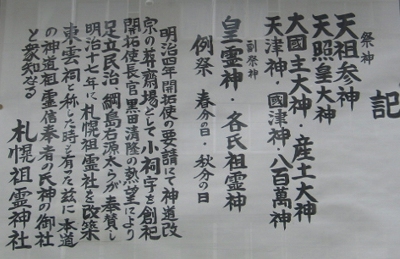 記
祭神
天祖参神
天照皇大神
大國主大神・産土大神
天津神・國津神・八百萬神
副祭神
皇霊神・各氏祖霊神
例祭 春分の日・秋分の日
明治四年開拓使の要請にて神道改
宗の葬齋場として小祠宇を創祀
開拓使長官黒田清隆の熱望により
足立民治 綱島右源太らが奉賛し
明治十七年に札幌祖霊社を改築
東雲祠と称した時も有った玆に本道
の神道祖霊信奉者の氏神の御社
と衆知なる
札幌祖霊神社